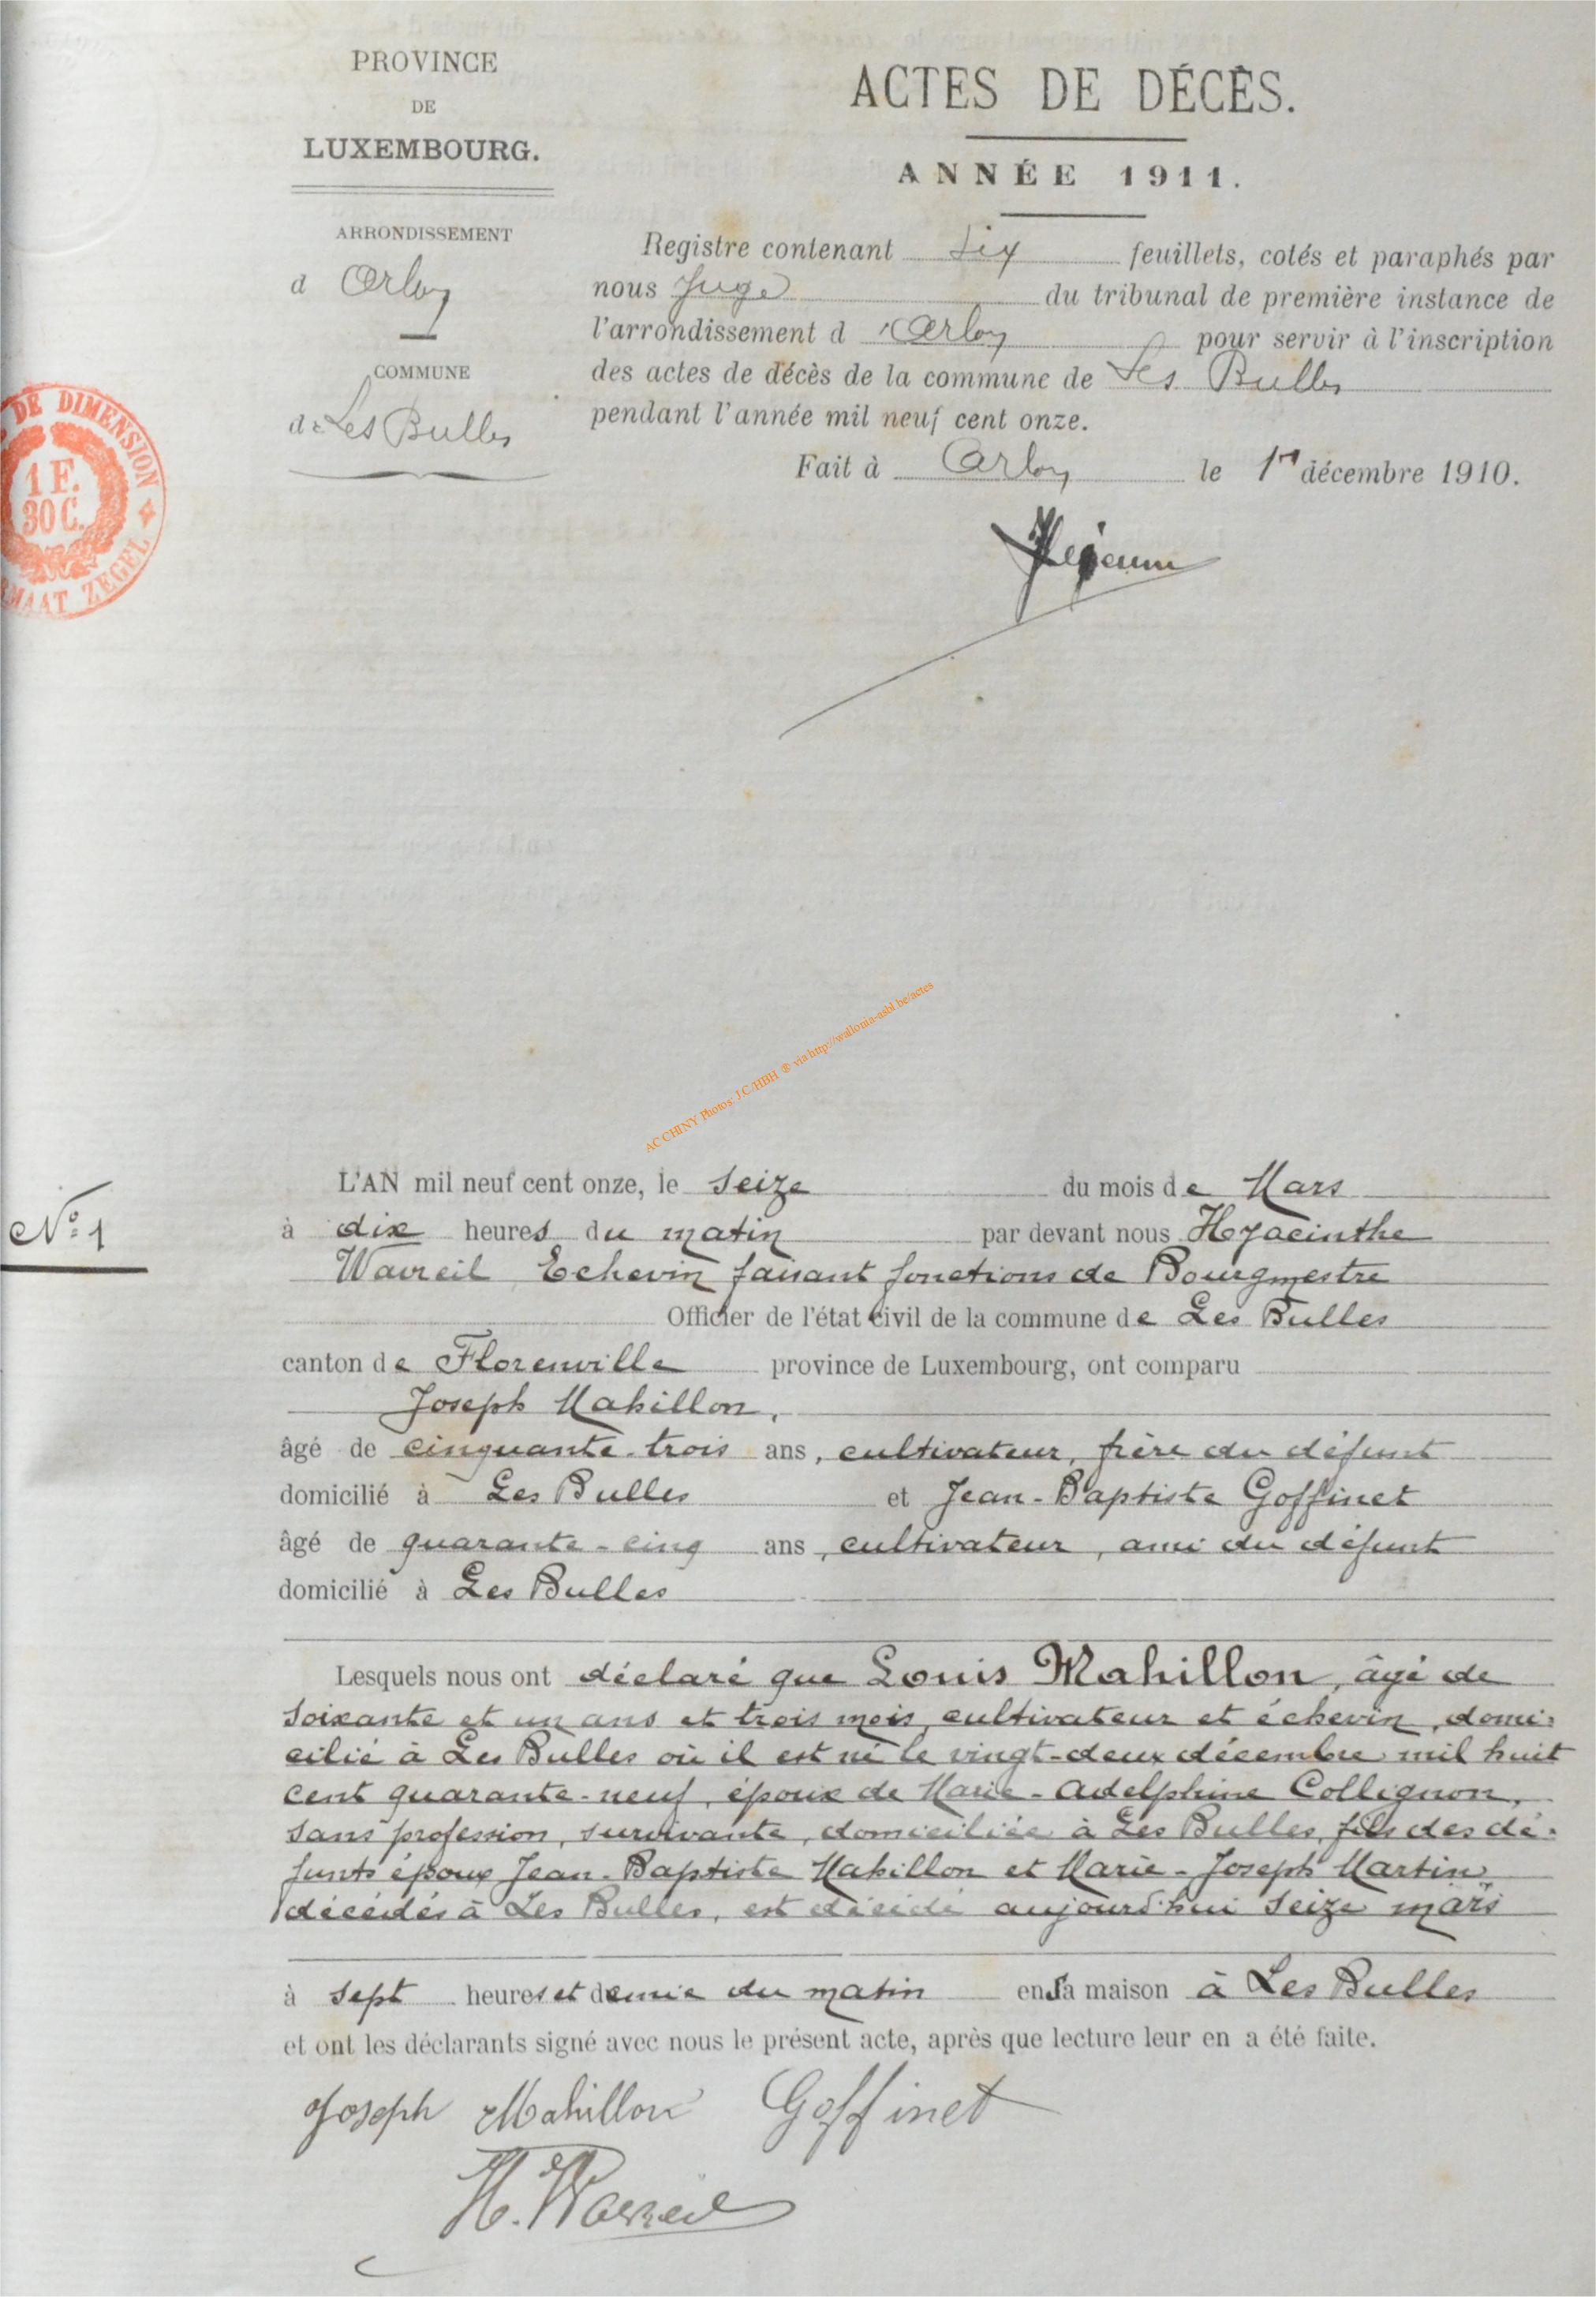 PROVINCE
DE
LUXEMBOURG.
ARRONDISSEMENT
d Arlon
COMMUNE
de Les Bulles
DE DIMENSION
1 F.
30 C.
MAAT ZEGEL
ACTES DE DÉCÈS.
ANNÉE 1911.
Registre contenant six feuillets, cotés et paraphés par
nous Juge du tribunal de première instance de
l'arrondissement d'Arlon pour servir à l'inscription
des actes de décès de la commune de Les Bulles
pendant l'année mil neuf cent onze.
Fait à Arlon le 1er décembre 1910.
AC CHINY Photos: J.C./HBH ® via http://wallonia-asbl.be/actes
N° 1
L'AN mil neuf cent onze, le seize du mois de Mars
à dix heures du matin par devant nous Hyacinthe
Wavreil Echevin faisant fonctions de Bourgmestre
Officier de l'état civil de la commune de Les Bulles
canton de Florenville province de Luxembourg, ont comparu
Joseph Mahillon,
âgé de cinquante-trois ans, cultivateur, frère du défunt
domicilié à Les Bulles et Jean-Baptiste Goffinet
âgé de quarante-cinq ans, cultivateur, ami du défunt
domicilié à Les Bulles
Lesquels nous ont déclaré que Louis Mahillon, âgé de
soixante et un ans et trois mois, cultivateur et échevin, domi=
cilié à Les Bulles où il est né le vingt-deux décembre mil huit
cent quarante-neuf, époux de Marie-Adelphine Collignon,
sans profession, survivante, domiciliée à Les Bulles, fils des dé=
funts époux Jean-Baptiste Mahillon et Marie-Joseph Martin
décédés à Les Bulles, est décédé aujourd'hui seize mars
à sept heures et demie du matin en sa maison à Les Bulles
et ont les déclarants signé avec nous le présent acte, après que lecture leur en a été faite.
Joseph Mahillon Goffinet
H. Wavreil